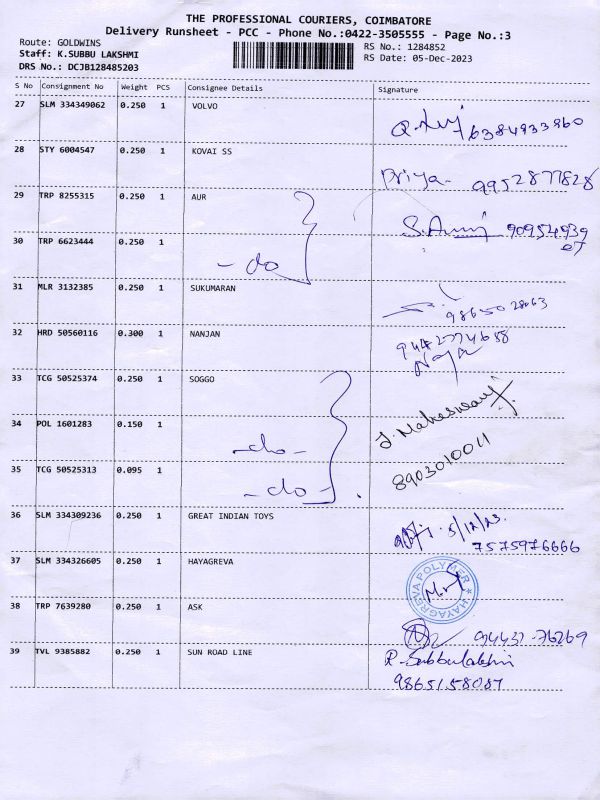 THE PROFESSIONAL COURIERS, COIMBATORE
Delivery Runsheet - PCC - Phone No.:0422-3505555 - Page No.:3
Route: GOLDWINS
Staff: K.SUBBU LAKSHMI
DRS No.: DCJB128485203
RS No.: 1284852
RS Date: 05-Dec-2023
S No Consignment No Weight PCS Consignee Details Signature
27 SLM 334349062 0.250 1 VOLVO
6384933960
28 STY 6004547 0.250 1 KOVAI SS
Priya- 9952877828
29 TRP 8255315 0.250 1 AUR
30 TRP 6623444 0.250 1
-do
31 MLR 3132385 0.250 1 SUKUMARAN
32 HRD 50560116 0.300 1 NANJAN
9442774658
33 TCG 50525374 0.250 1 SOGGO
34 POL 1601283 0.150 1
-do-
J. Maheswari
35 TCG 50525313 0.095 1
-do-
8903010011
36 SLM 334309236 0.250 1 GREAT INDIAN TOYS
5/12/23.
7575976666
37 SLM 334326605 0.250 1 HAYAGREVA
HAYAGREVA POLYMER
38 TRP 7639280 0.250 1 ASK
94437-76269
39 TVL 9385882 0.250 1 SUN ROAD LINE
R. Subbulakshmi
9865158087